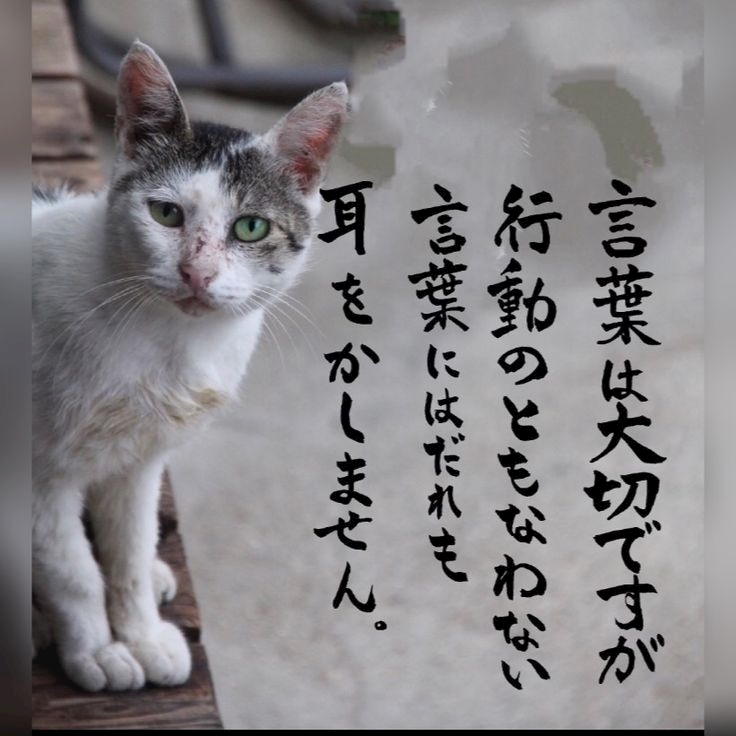 言葉は大切ですが
行動のともなわない
言葉にはだれも
耳をかしません。